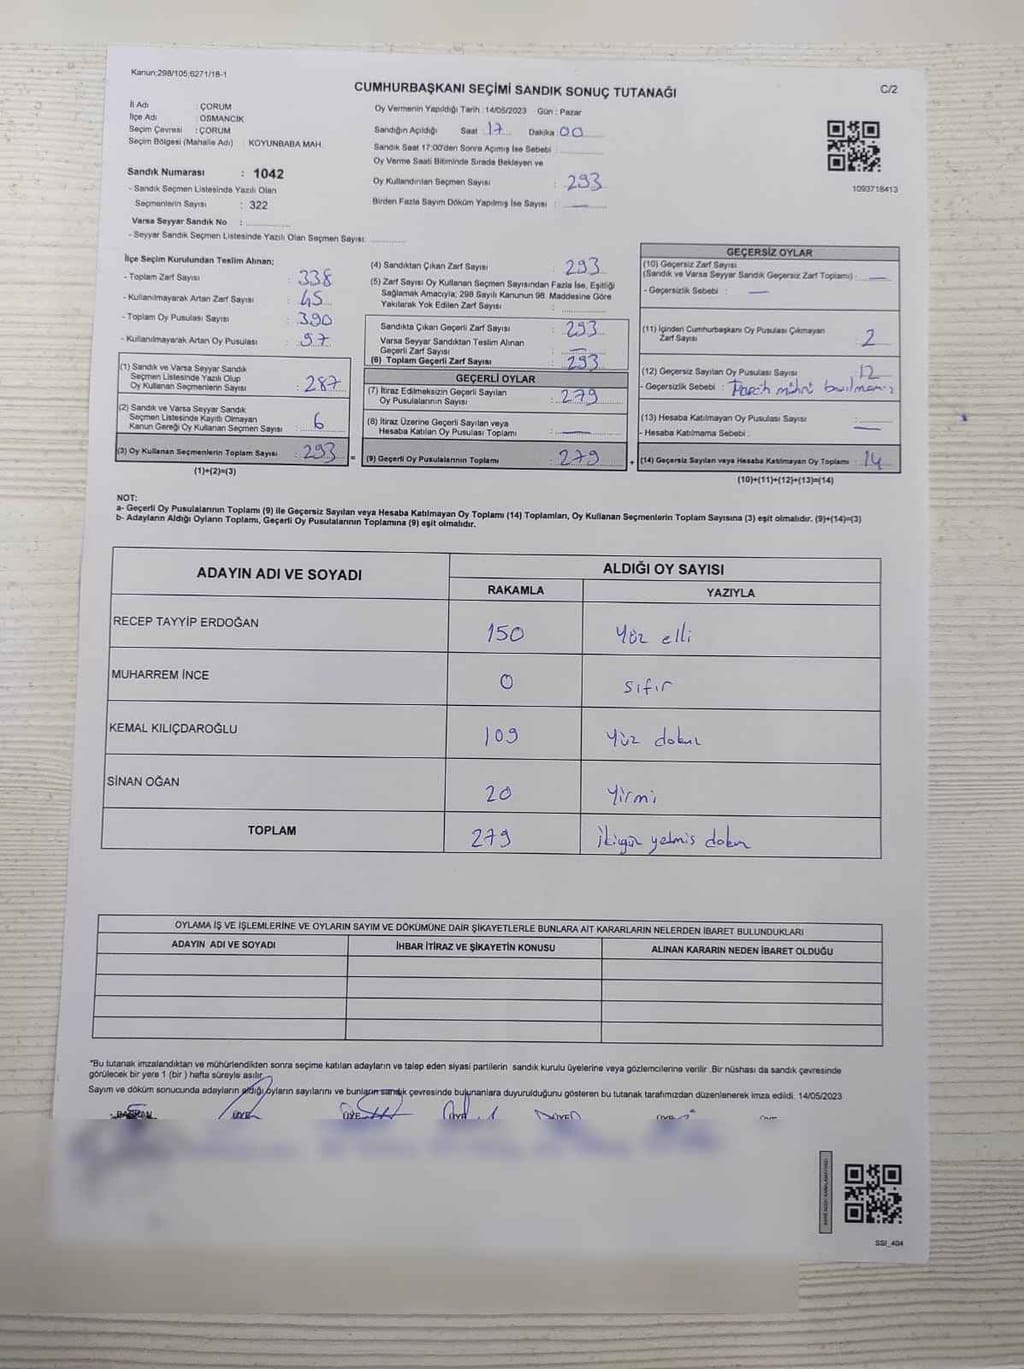 Kanun:298/105;6271/18-1
CUMHURBAŞKANI SEÇİMİ SANDIK SONUÇ TUTANAĞI
C/2
İl Adı : ÇORUM
İlçe Adı : OSMANCIK
Seçim Çevresi : ÇORUM
Seçim Bölgesi (Mahalle Adı) : KOYUNBABA MAH.
Sandık Numarası : 1042
- Sandık Seçmen Listesinde Yazılı Olan
Seçmenlerin Sayısı : 322
Varsa Seyyar Sandık No :
- Seyyar Sandık Seçmen Listesinde Yazılı Olan Seçmen Sayısı:
Oy Vermenin Yapıldığı Tarih :14/05/2023 Gün : Pazar
Sandığın Açıldığı Saat 17 Dakika :00
Sandık Saat 17:00'den Sonra Açımış İse Sebebi
Oy Verme Saati Bitiminde Sırada Bekleyen ve
Oy Kullandırılan Seçmen Sayısı : 293
Birden Fazla Sayım Döküm Yapılmış İse Sayısı : —
1093718413
İlçe Seçim Kurulundan Teslim Alınan;
- Toplam Zarf Sayısı : 338
- Kullanılmayarak Artan Zarf Sayısı : 45
- Toplam Oy Pusulası Sayısı : 390
- Kullanılmayarak Artan Oy Pusulası : 97
(1) Sandık ve Varsa Seyyar Sandık
Seçmen Listesinde Yazılı Olup
Oy Kullanan Seçmenlerin Sayısı : 287
(2) Sandık ve Varsa Seyyar Sandık
Seçmen Listesinde Kayıtlı Olmayan
Kanun Gereği Oy Kullanan Seçmen Sayısı : 6
(3) Oy Kullanan Seçmenlerin Toplam Sayısı : 293
(1)+(2)=(3)
=
(4) Sandıktan Çıkan Zarf Sayısı : 293
(5) Zarf Sayısı Oy Kullanan Seçmen Sayısından Fazla İse, Eşitliği
Sağlamak Amacıyla; 298 Sayılı Kanunun 98. Maddesine Göre
Yakılarak Yok Edilen Zarf Sayısı :
Sandıkta Çıkan Geçerli Zarf Sayısı : 293
Varsa Seyyar Sandıktan Teslim Alınan
Geçerli Zarf Sayısı : —
(6) Toplam Geçerli Zarf Sayısı : 293
GEÇERLİ OYLAR
(7) İtiraz Edilmeksizin Geçerli Sayılan
Oy Pusulalarının Sayısı : 279
(8) İtiraz Üzerine Geçerli Sayılan veya
Hesaba Katılan Oy Pusulası Toplamı : —
(9) Geçerli Oy Pusulalarının Toplamı : 279
+
GEÇERSİZ OYLAR
(10) Geçersiz Zarf Sayısı
(Sandık ve Varsa Seyyar Sandık Geçersiz Zarf Toplamı) : —
- Geçersizlik Sebebi : —
(11) İçinden Cumhurbaşkanı Oy Pusulası Çıkmayan
Zarf Sayısı : 2
(12) Geçersiz Sayılan Oy Pusulası Sayısı : 12
- Geçersizlik Sebebi : Tercih mührü
(13) Hesaba Katılmayan Oy Pusulası Sayısı : —
- Hesaba Katılmama Sebebi : —
(14) Geçersiz Sayılan veya Hesaba Katılmayan Oy Toplamı : 14
(10)+(11)+(12)+(13)=(14)
NOT:
a- Geçerli Oy Pusulalarının Toplamı (9) ile Geçersiz Sayılan veya Hesaba Katılmayan Oy Toplamı (14) Toplamları, Oy Kullanan Seçmenlerin Toplam Sayısına (3) eşit olmalıdır. (9)+(14)=(3)
b- Adayların Aldığı Oyların Toplamı, Geçerli Oy Pusulalarının Toplamına (9) eşit olmalıdır.
ADAYIN ADI VE SOYADI
ALDIĞI OY SAYISI
RAKAMLA YAZIYLA
RECEP TAYYİP ERDOĞAN 150 Yüz elli
MUHARREM İNCE 0 sıfır
KEMAL KILIÇDAROĞLU 109 Yüz dokuz
SİNAN OĞAN 20 Yirmi
TOPLAM 279 İkiyüz yetmiş dokuz
OYLAMA İŞ VE İŞLEMLERİNE VE OYLARIN SAYIM VE DÖKÜMÜNE DAİR ŞİKAYETLERLE BUNLARA AİT KARARLARIN NELERDEN İBARET BULUNDUKLARI
ADAYIN ADI VE SOYADI İHBAR İTİRAZ VE ŞİKAYETİN KONUSU ALINAN KARARIN NEDEN İBARET OLDUĞU
*Bu tutanak imzalandıktan ve mühürlendikten sonra seçime katılan adayların ve talep eden siyasi partilerin sandık kurulu üyelerine veya gözlemcilerine verilir .Bir nüshası da sandık çevresinde
görülecek bir yere 1 (bir ) hafta süreyle asılır.
Sayım ve döküm sonucunda adayların aldığı oyların sayılarını ve bunların sandık çevresinde bulunanlara duyurulduğunu gösteren bu tutanak tarafımızdan düzenlenerek imza edildi. 14/05/2023
BAŞKAN ÜYE ÜYE
SSI_404